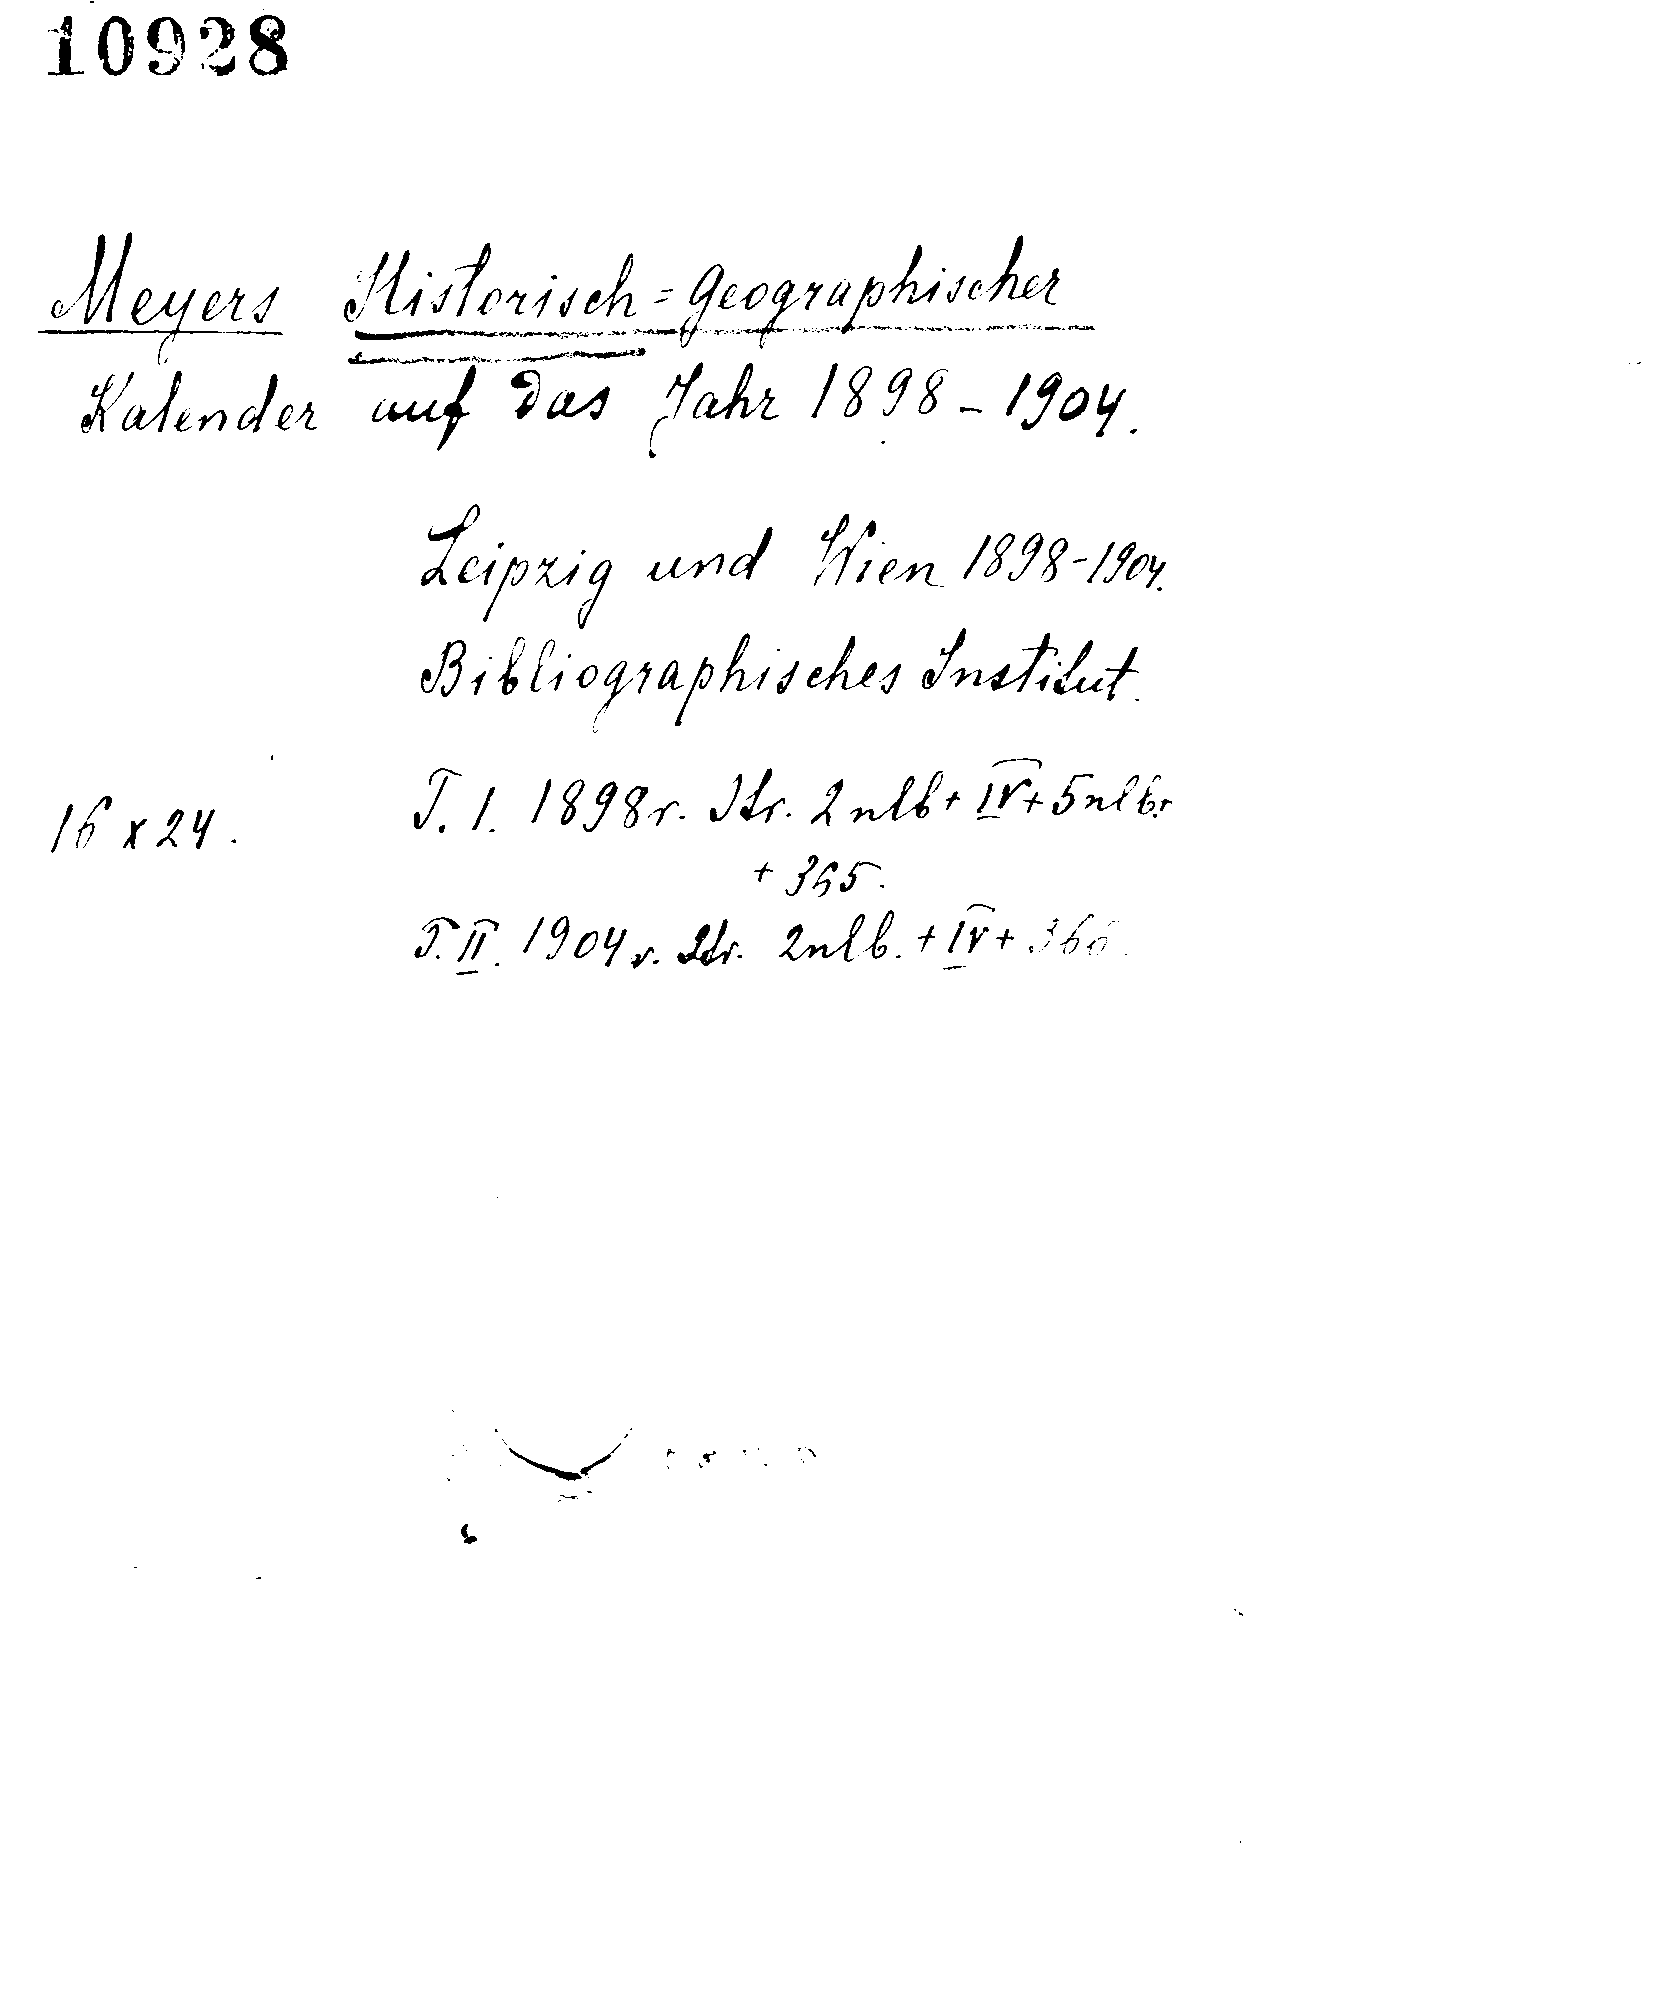 10928
Meyers Historisch=Geographischer
Kalender auf das Jahr 1898-1904.
Leipzig und Wien 1898-1904.
Bibliographisches Institut.
T. I. 1898 r. Str. 2 nlb + IV + 5 nlb. +
16 x 24.
+ 365.
T. II. 1904 r. Str. 2 nlb. + IV + 366.